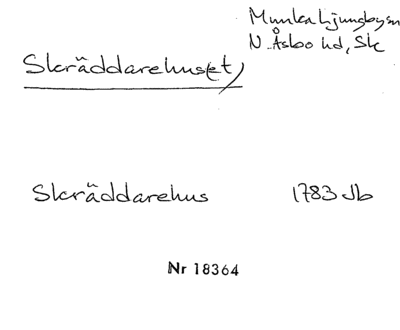 Munka Ljungby sn
N. Åsbo hd, Sk
Skräddarehus(et)
Skräddarehus 1783 Jb
Nr 18364